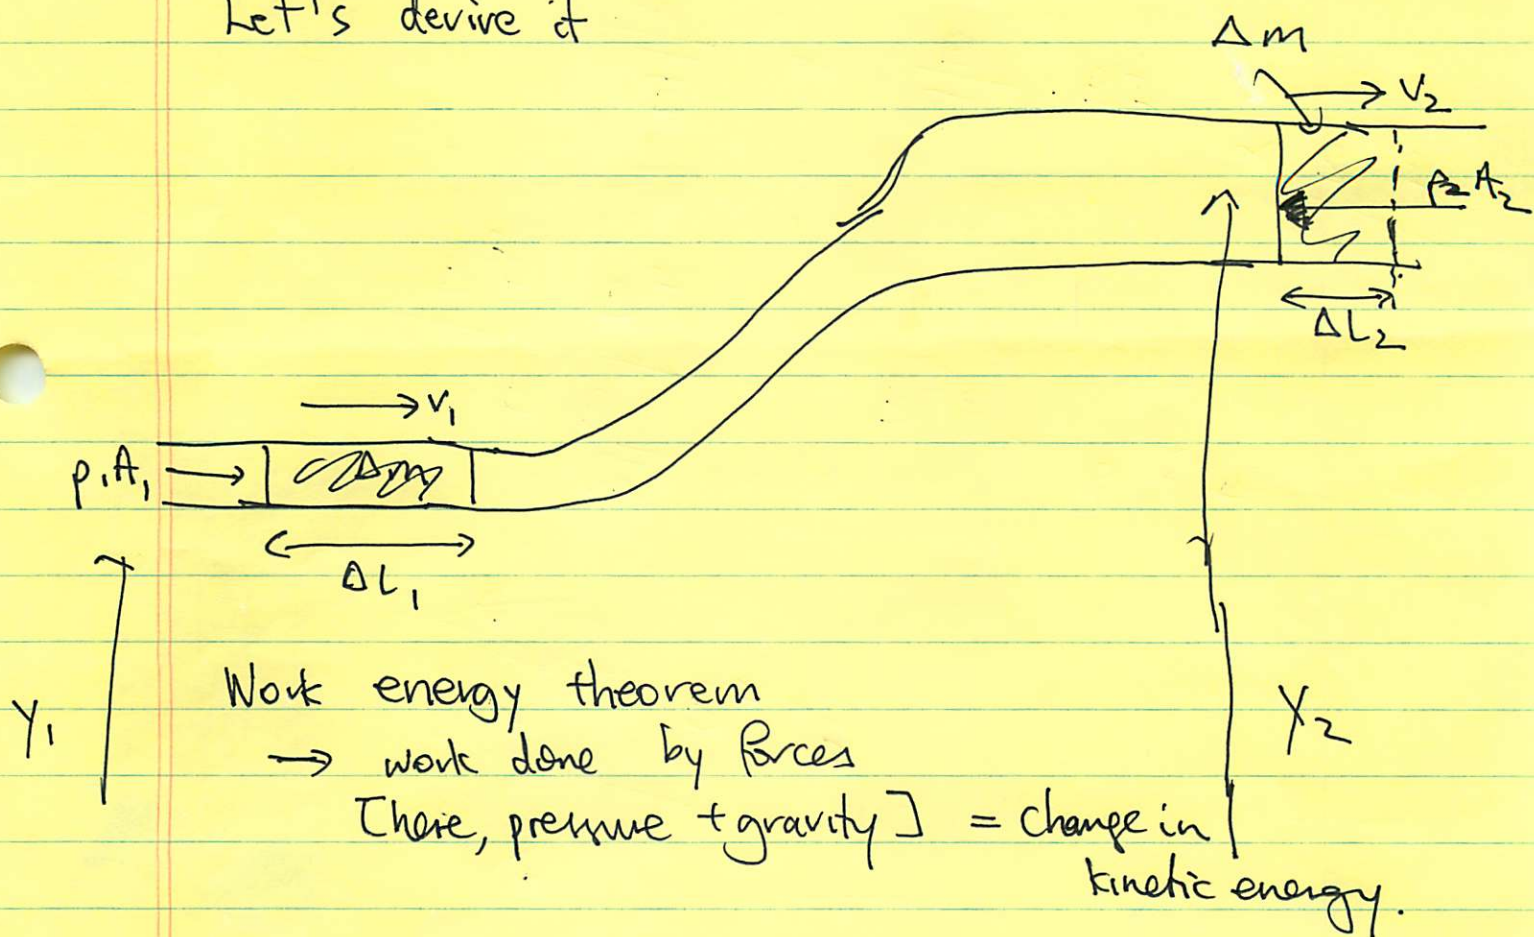 Let's derive it
Δm
v₂
p₂A₂
ΔL₂
v₁
p₁A₁
Δm
ΔL₁
y₁
y₂
Work energy theorem
→ work done by forces
[here, pressure + gravity] = change in
kinetic energy.